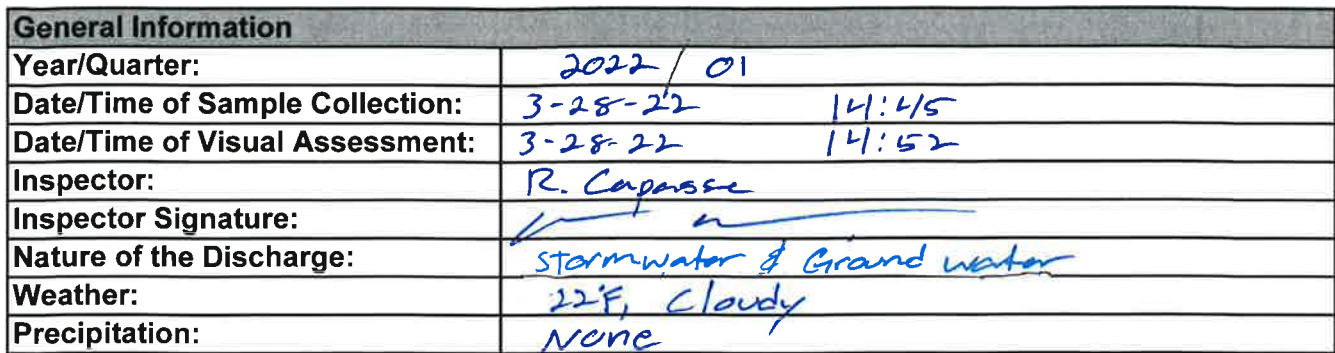 General Information
Year/Quarter: 2022 / 01
Date/Time of Sample Collection: 3-28-22 14:45
Date/Time of Visual Assessment: 3-28-22 14:52
Inspector: R.
Inspector Signature:
Nature of the Discharge: Stormwater & Ground water
Weather: 22°F, Cloudy
Precipitation: None